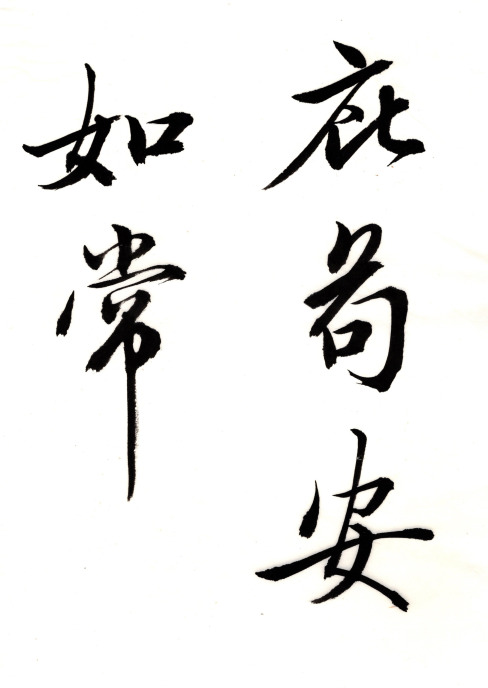 庇苟安
如常